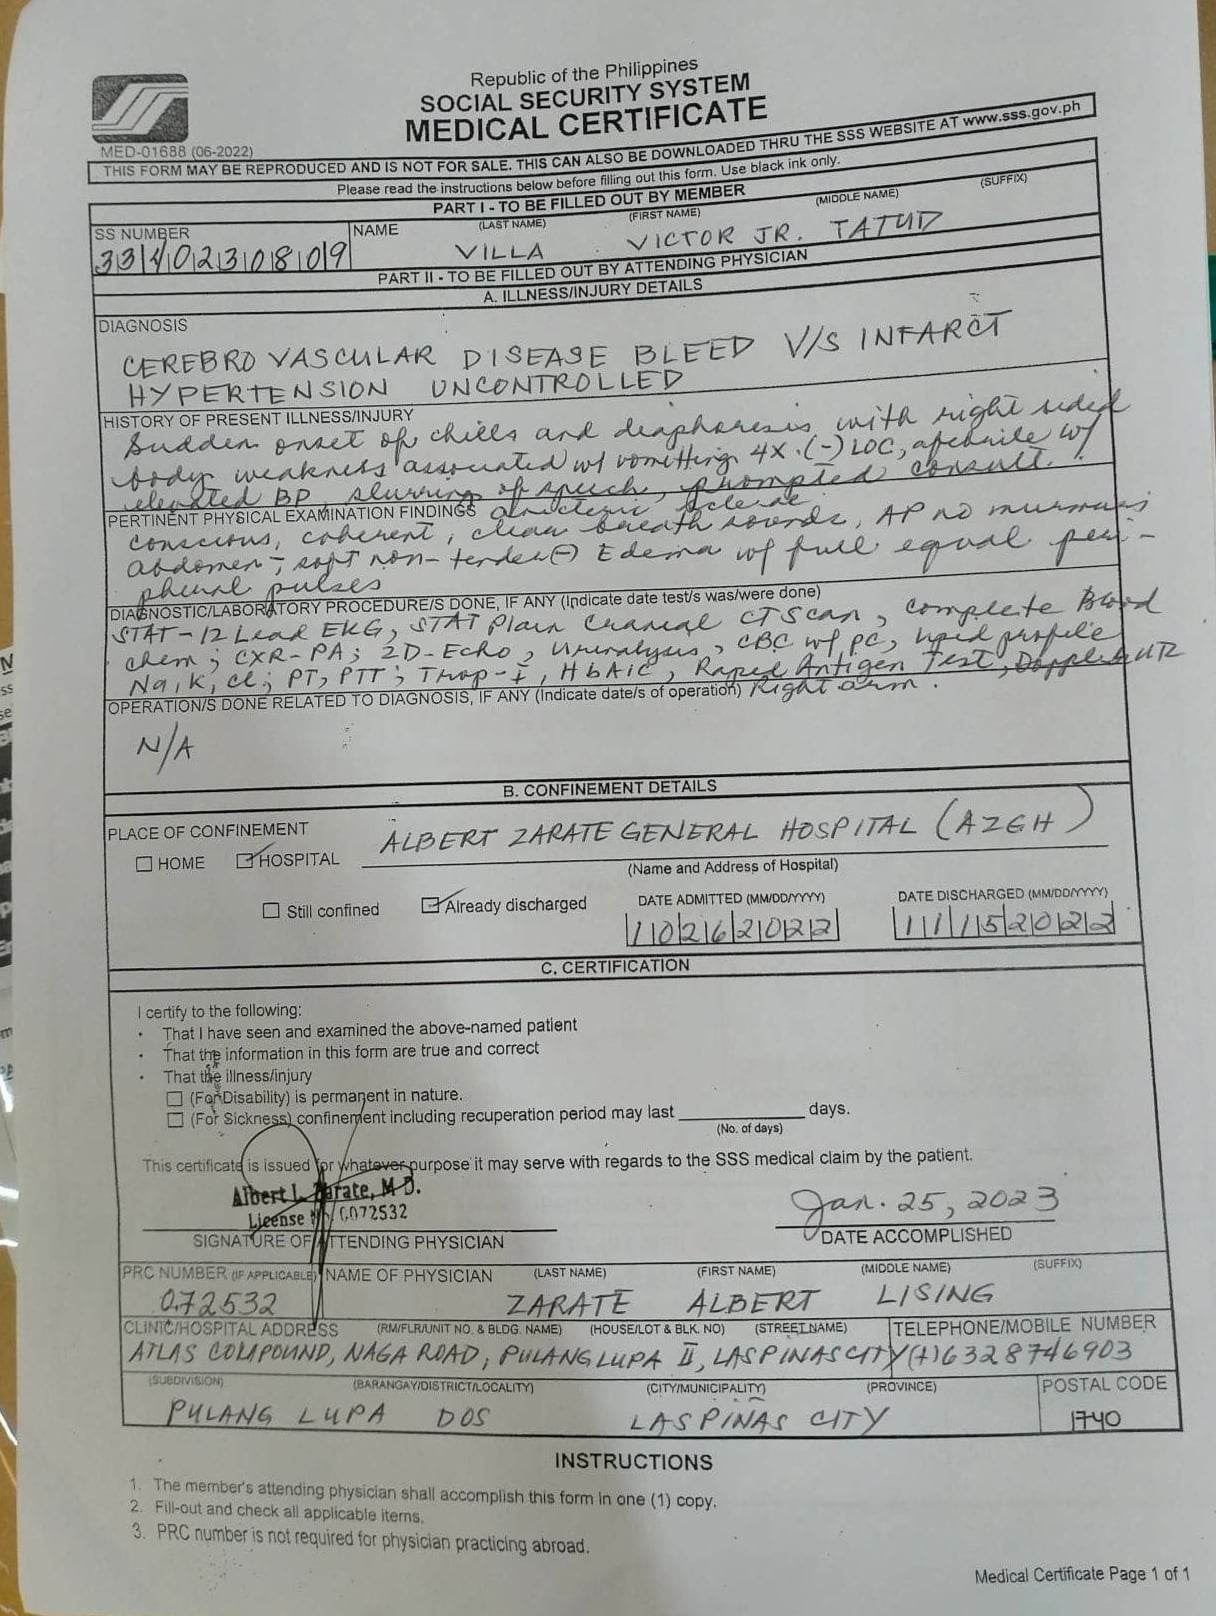 Republic of the Philippines
SOCIAL SECURITY SYSTEM
MEDICAL CERTIFICATE
MED-01688 (06-2022)
THIS FORM MAY BE REPRODUCED AND IS NOT FOR SALE. THIS CAN ALSO BE DOWNLOADED THRU THE SSS WEBSITE AT www.sss.gov.ph
Please read the instructions below before filling out this form. Use black ink only.
PART I - TO BE FILLED OUT BY MEMBER
SS NUMBER NAME (LAST NAME) (FIRST NAME) (MIDDLE NAME) (SUFFIX)
3340230809 VILLA VICTOR JR. TATUD
PART II - TO BE FILLED OUT BY ATTENDING PHYSICIAN
A. ILLNESS/INJURY DETAILS
DIAGNOSIS
CEREBRO VASCULAR DISEASE BLEED V/S INFARCT
HYPERTENSION UNCONTROLLED
HISTORY OF PRESENT ILLNESS/INJURY
Sudden onset of chills and diaphoresis with right sided
body weakness associated w/ vomitting 4X. (-) LOC, afebrile w/
elevated BP, slurring of speech, prompted consult.
PERTINENT PHYSICAL EXAMINATION FINDINGS anicteric sclerae
conscious, coherent, clear breath sounds, AP no murmurs
abdomen - soft non-tender (-) Edema w/ full equal peri-
pheral pulses
DIAGNOSTIC/LABORATORY PROCEDURE/S DONE, IF ANY (Indicate date test/s was/were done)
STAT-12 Lead EKG, STAT Plain Cranial CT Scan, Complete Blood
chem; CXR-PA; 2D-Echo, Urinalysis, CBC w/ pc, lipid profile
Na, K, cl; PT, PTT; Trop-I, HbAIC, Rapid Antigen Test, Doppler UTZ
OPERATION/S DONE RELATED TO DIAGNOSIS, IF ANY (Indicate date/s of operation) Right arm.
N/A
B. CONFINEMENT DETAILS
PLACE OF CONFINEMENT
ALBERT ZARATE GENERAL HOSPITAL (AZGH)
HOME HOSPITAL
(Name and Address of Hospital)
Still confined Already discharged DATE ADMITTED (MM/DD/YYYY) DATE DISCHARGED (MM/DD/YYYY)
10262022 11152022
C. CERTIFICATION
I certify to the following:
· That I have seen and examined the above-named patient
· That the information in this form are true and correct
· That the illness/injury
(For Disability) is permanent in nature.
(For Sickness) confinement including recuperation period may last ____________ days.
(No. of days)
This certificate is issued for whatever purpose it may serve with regards to the SSS medical claim by the patient.
Albert L. Zarate, M D.
License No 0072532
Jan. 25, 2023
SIGNATURE OF ATTENDING PHYSICIAN DATE ACCOMPLISHED
PRC NUMBER (IF APPLICABLE) NAME OF PHYSICIAN (LAST NAME) (FIRST NAME) (MIDDLE NAME) (SUFFIX)
072532 ZARATE ALBERT LISING
CLINIC/HOSPITAL ADDRESS (RM/FLR/UNIT NO. & BLDG. NAME) (HOUSE/LOT & BLK. NO) (STREET NAME) TELEPHONE/MOBILE NUMBER
ATLAS COMPOUND, NAGA ROAD, PULANG LUPA II, LAS PINAS CITY (+)6328746903
(SUBDIVISION) (BARANGAY/DISTRICT/LOCALITY) (CITY/MUNICIPALITY) (PROVINCE) POSTAL CODE
PULANG LUPA DOS LAS PINAS CITY 1740
INSTRUCTIONS
1. The member's attending physician shall accomplish this form in one (1) copy.
2. Fill-out and check all applicable items.
3. PRC number is not required for physician practicing abroad.
Medical Certificate Page 1 of 1